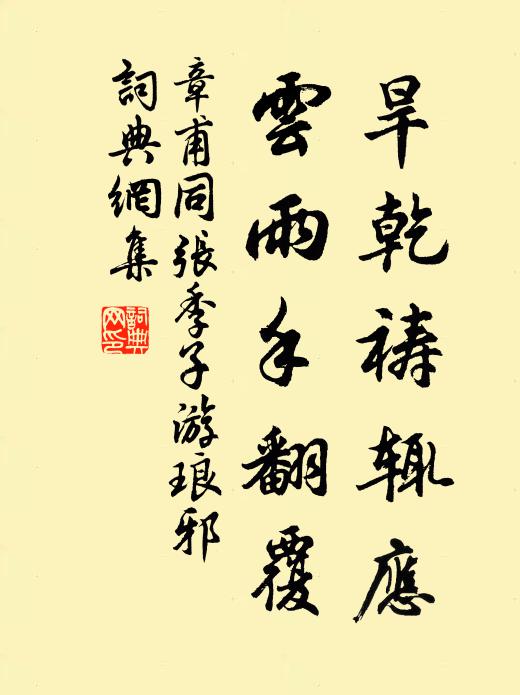 旱乾祷辄應
雲雨手翻覆
章甫同張季子游琅邪
詞典網集
詞典网印